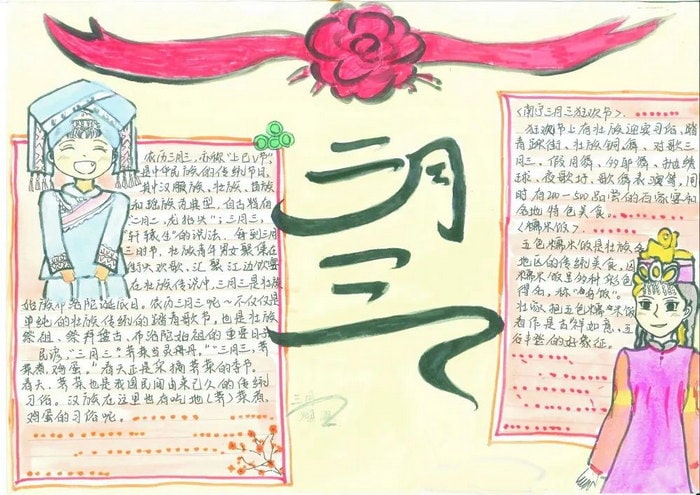 三月三
农历三月三,亦称"上巳节",
是中华民族的传统节日,
其中汉族、壮族、
和瑶族为典型,自古韵有
"二月二,龙抬头";三月三,
轩辕生"的说法。每到三月
三时节,壮族青年男女聚集在
街头欢歌、汇聚江边饮宴
在壮族传说中,三月三是壮族
始族布洛陀诞辰日。农历三月三呢~不仅仅是
单纯的壮族传统的踏青歌节,也是壮族
祭祖、祭拜盘古、布洛陀始祖的重要日子
民谚"三月三"荠菜当灵丹。""三月三,荠
菜煮鸡蛋。"春天正是采摘荠菜的季节。
春天,荠菜也是我国民间由来已久的传统
习俗。汉族在这里也有吃地(荠)菜煮
鸡蛋的习俗呢。
<南宁三月三狂欢节>
狂欢节上有壮族迎宾习俗、踏
青踩街、壮族铜舞、对歌三
月三、假月舞、多耶舞、抛绣
球、夜歌圩、歌舞表演等,同
时有200-500品营的百家宴和
各地特色美食。
<糯米饭>
五色糯米饭是壮族
地区的传统美食。因
糯米饭呈多种彩色
得名,称
壮家把五色糯米饭
看作是吉祥如意、五
谷丰登的好象征。